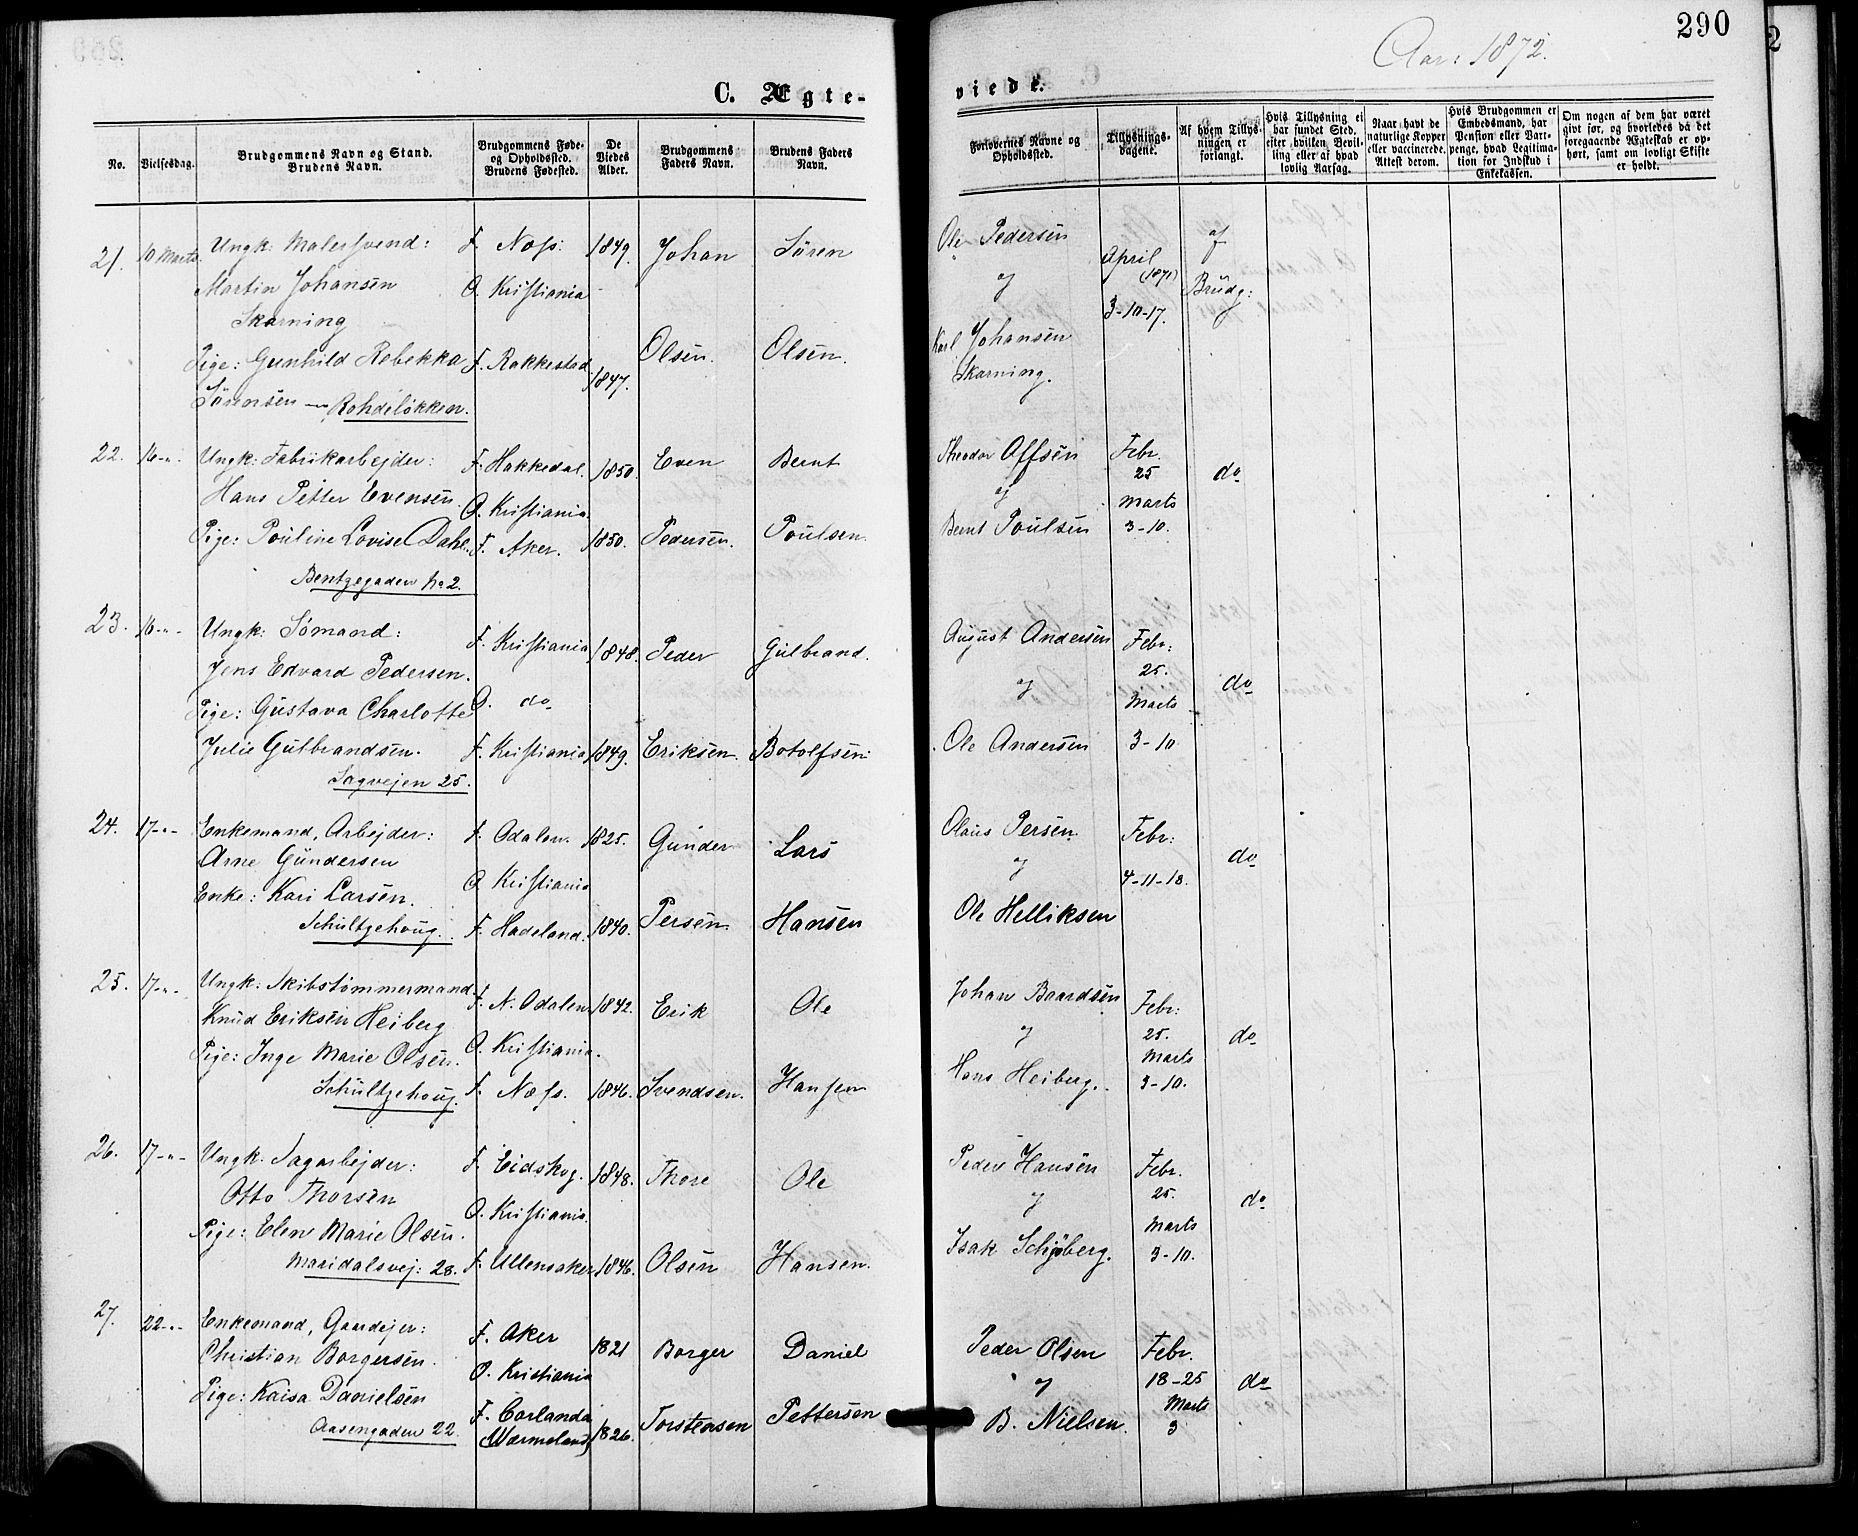 290
Aar: 1872.
C. Ægte-
viede.
No.
Vielsesdag.
Brudgommens Navn og Stand.
Brudens Navn.
Brudgommens Føde-
og Opholdssted.
Brudens Fødested.
De
Viedes
Alder.
Brudgommens
Faders Navn.
Brudens Faders
Navn.
Forlovernes Navne og
Opholdssted.
Tillysnings-
dagene.
Af hvem Tillys-
ningen er
forlangt.
Hvis Tillysning ei
har fundet Sted,
efter hvilken Bevil-
ling eller af hvad
lovlig Aarsag.
Naar havt de
naturlige Kopper
eller vaccinerede.
Attest derom.
Hvis Brudgommen er
Embedsmand, har
Pension eller Vart-
penge, hvad Legitima-
tion for Indskud i
Enkekassen.
Om nogen af dem har været
givt før, og hvorledes da det
foregaaende Ægteskab er op-
hørt, samt om lovligt Skifte
er holdt.
21. 10 Marts. Ungk: Malersvend: F. Næss. 1849. Johan Sören Ole Pedersen af
Martin Johansen O. Kristiania og April (1871) Brudg:
Skarning 3-10-17.
Pige: Gunhild Rebekka F. Rakkestad. 1847. Olsen. Olsen. Karl Johansen
Sörensen - Rohdeløkken. Skarning.
22. 16-"- Ungk: Fabrikarbejder: F. Hakkedal. 1850. Even Bernt Theodor Offsen Febr.
Hans Petter Evensen. O. Kristiania. og 25 do
Marts
Pige: Pouline Lovise Dahl. F. Aker. 1850. Pedersen. Poulsen. Bernt Poulsen 3-10.
Bentzegaden No 2.
23. 16-"- Ungk: Sömand: F. Kristiania 1848. Peder Gulbrand. August Andersen Febr:
Jens Edvard Pedersen. 25.
Pige: Gustava Charlotte O. do og Marts do
Julie Gulbrandsen. F. Kristiania 1849. Eriksen. Botolfsen. Ole Andersen 3-10
Sagvejen 25.
24. 17-"- Enkemand, Arbejder: F. Odalen. 1825. Gunder Lars Olaus Persen. Febr:
Arne Gundersen O. Kristiania og 4-11-18. do
Enke: Kari Larsen. F. Hadeland. 1840. Persen Hansen Ole Helliksen
Schultzehoug.
25. 17-"- Ungk: Skibstömmermand F. N. Odalen 1842. Erik Ole Johan Baardsen Febr:
Knud Eriksen Heiberg O. Kristiania. og 25. do
Pige: Inge Marie Olsen. Marts
Schultzehoug. F. Næss. 1846. Svendsen. Hansen Hans Heiberg. 3-10.
26. 17-"- Ungk: Sagarbejder: F. Eidskog. 1848. Thore Ole Peder Hansen Febr.
Otto Thorsen O. Kristiania. og 25. do
Pige: Elen Marie Olsen. Marts
Maridalsvej: 28. F. Ullensaker 1846. Olsen Hansen. Isak Schjöberg. 3-10.
27. 22-"- Enkemand, Gaardejer: F. Aker 1821 Borger Daniel Peder Olsen Febr.
Christian Borgersen. O. Kristiania og 18-25 do
Pige: Kaisa Danielsen F. Carlanda Torstensen Pettersen Marts
Aasengaden 22. (Wærmeland) 1826. B. Nielsen. 3